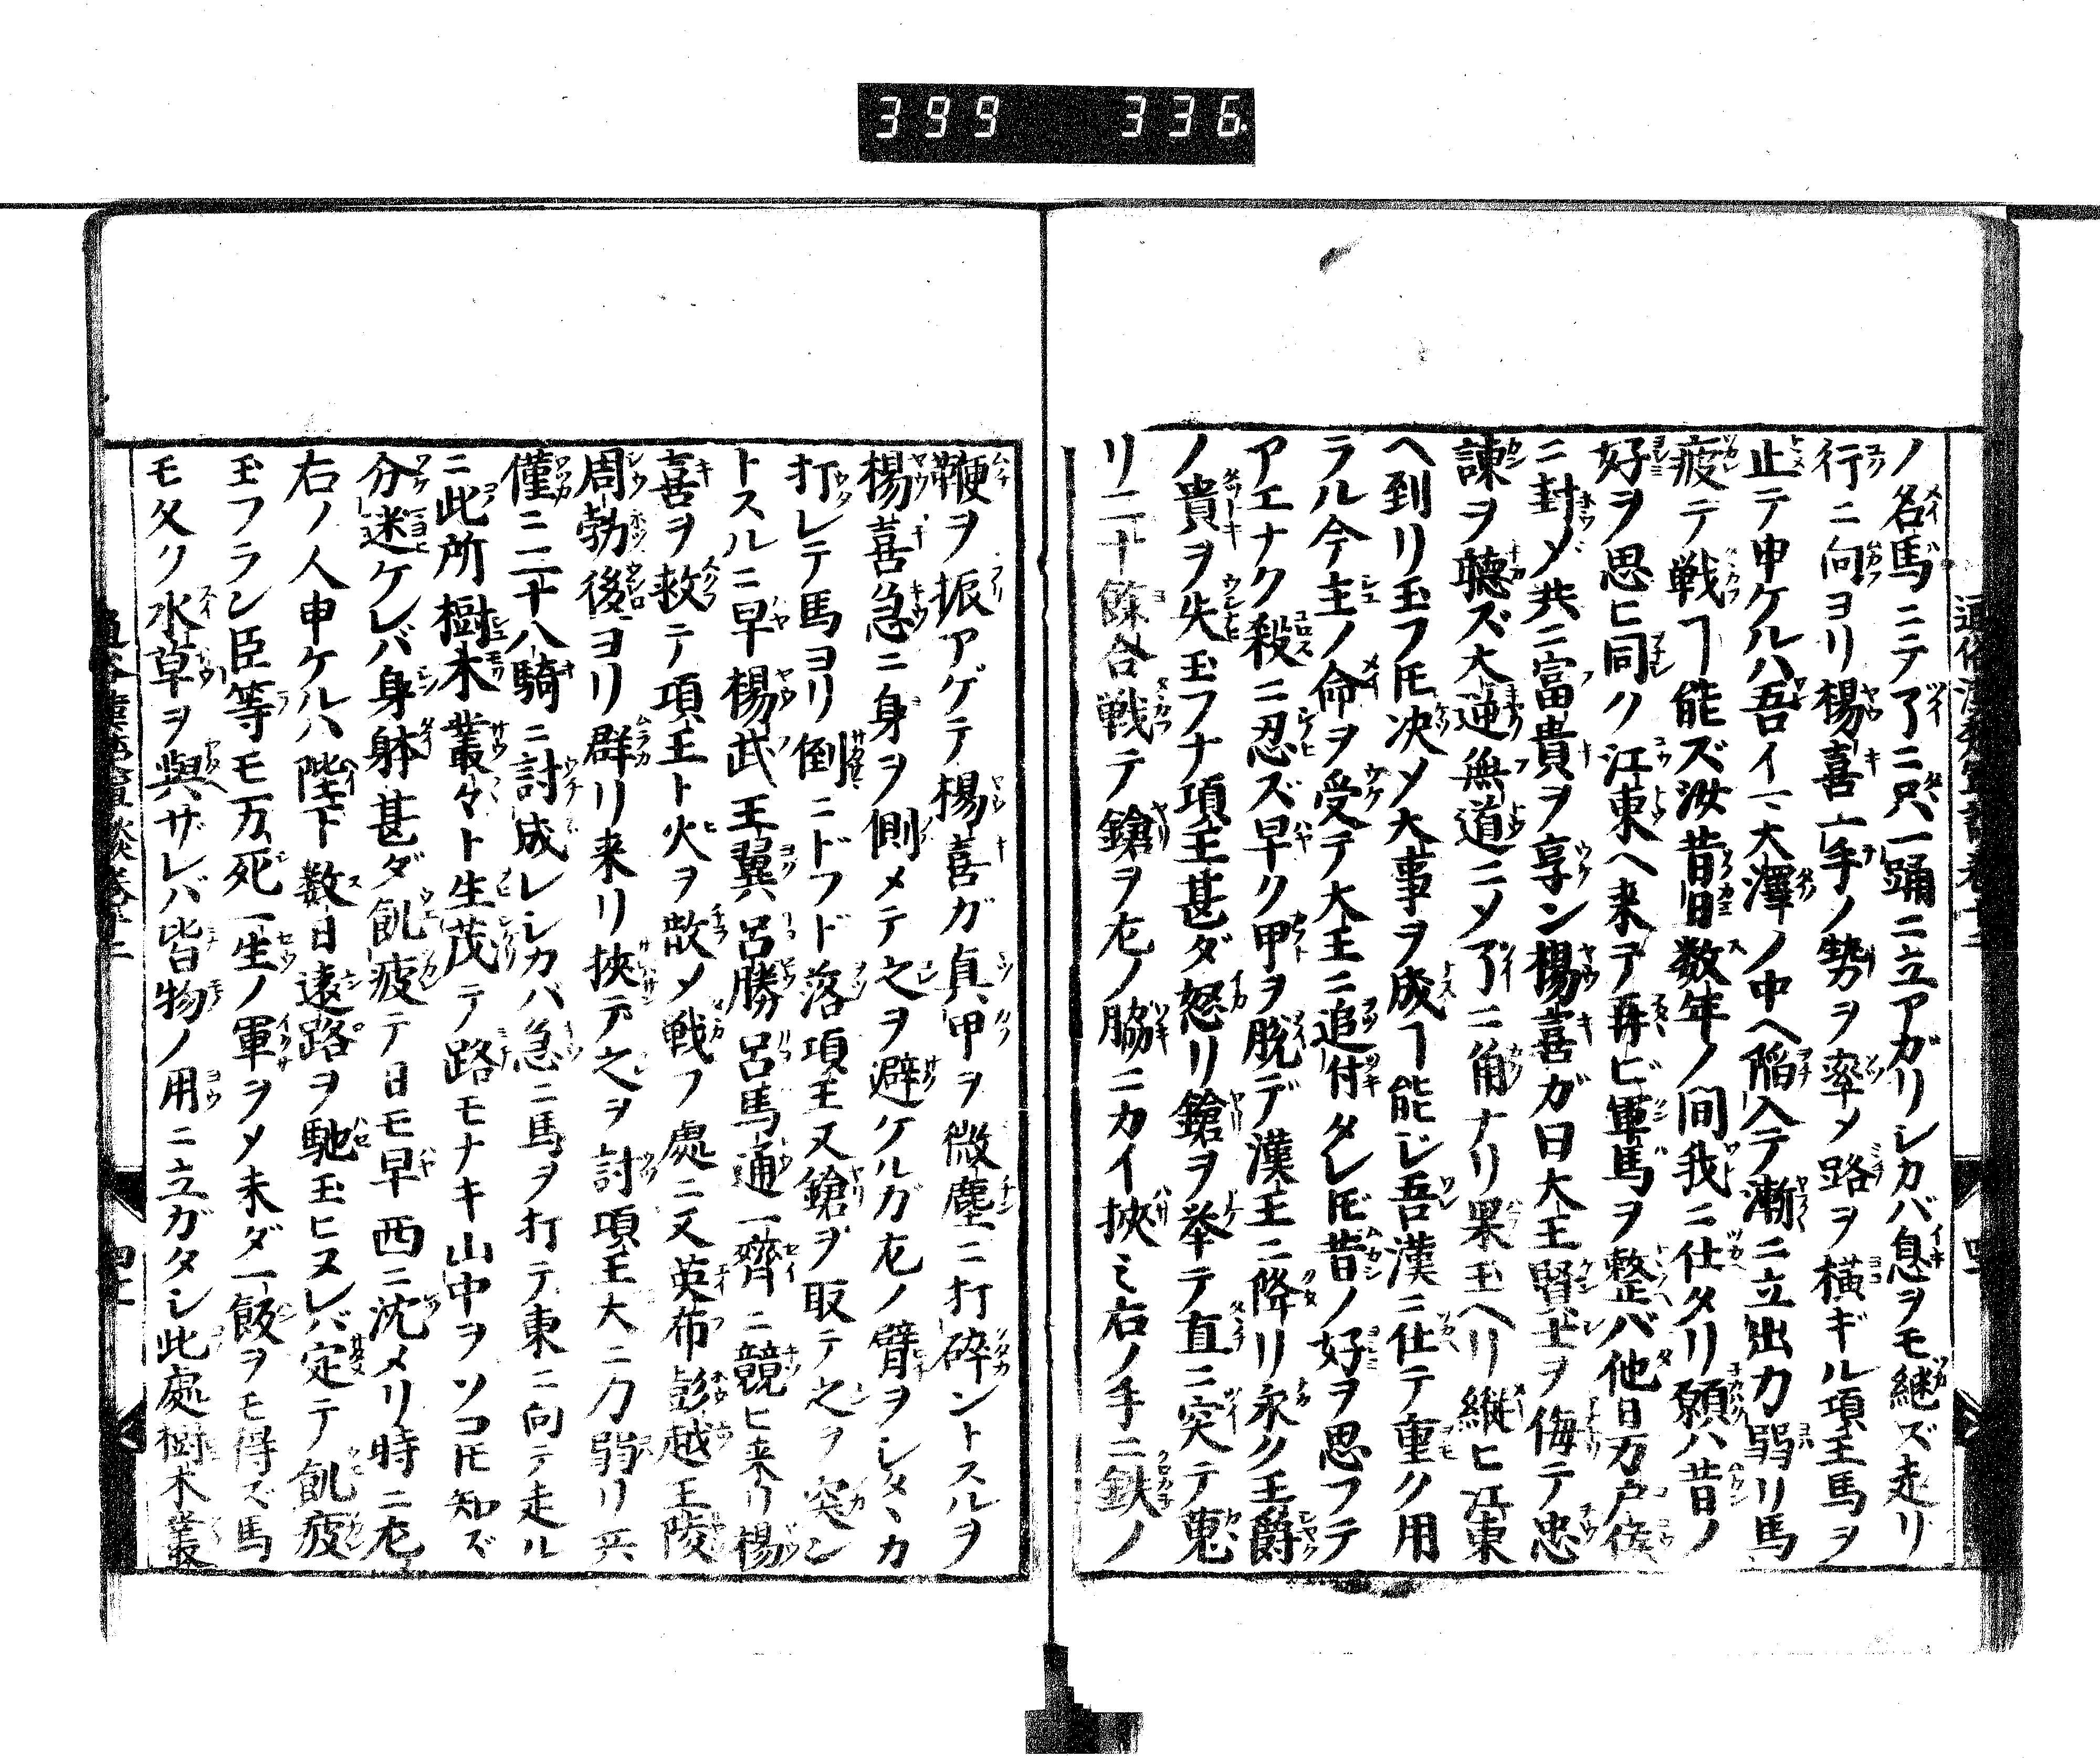 399 336
ノ名馬ニテ了ニ只一踊ニ立アガリシカバ息ヲモ継ズ走リ
行ニ向ヨリ楊喜一手ノ勢ヲ率〆路ヲ横ギル項王馬ヲ
止テ申ケルハ吾イマ大澤ノ中ヘ陥入テ漸ニ立出力弱リ馬
疲テ戦ヿ能ズ汝昔日数年ノ間我ニ仕タリ願ハ昔ノ
好ヲ思ヒ同ク江東ヘ来テ再ビ軍馬ヲ整バ他日万戸侯
ニ封ゾ共ニ富貴ヲ享ン楊喜ガ曰大王賢士ヲ侮テ忠
諫ヲ聴ズ大逆無道ニ〆了ニ角ナリ果玉ヘリ縦ヒ江東
ヘ到リ玉フ𪜈决〆大事ヲ成ヿ能ジ吾漢ニ仕テ重ク用
ラル今主ノ命ヲ受テ大王ニ追付タレ𪜈昔ノ好ヲ思フテ
アエナク殺ニ忍ズ早ク甲ヲ脱デ漢王ニ降リ永ク王爵
ノ貴ヲ失玉フナ項王甚ダ怒リ鎗ヲ挙テ直ニ突テ蒐
リ二十餘合戦テ鎗ヲ左ノ脇ニカイ挾ミ右ノ手ニ鉄ノ
鞭ヲ振アゲテ楊喜ガ真甲ヲ微塵ニ打碎ントスルヲ
楊喜急ニ身ヲ側メテ之ヲ避ケルガ左ノ臂ヲシタヽカ
打レテ馬ヨリ倒ニドフド落項王又鎗ヲ取テ之ヲ突ン
トスルニ早楊武王翼呂勝呂馬通一齊ニ競ヒ来リ楊
喜ヲ救テ項王ト火ヲ散〆戦フ處ニ又英布彭越王陵
周勃後ヨリ群リ来リ挾テ之ヲ討項王大ニ力弱リ兵
僅ニ二十八騎ニ討成レシカバ急ニ馬ヲ打テ東ニ向テ走ル
ニ此所樹木叢々ト生茂テ路モナキ山中ヲソコ𪜈知ズ
分迷ケレバ身躰甚ダ飢疲テ日モ早西ニ沈メリ時ニ左
右ノ人申ケルハ陛下数日遠路ヲ馳玉ヒヌレバ定テ飢疲
玉フラン臣等モ万死一生ノ軍ヲ〆未ダ一飯ヲモ得ズ馬
モ久ク水草ヲ與ザレバ皆物ノ用ニ立ガタシ此處樹木叢